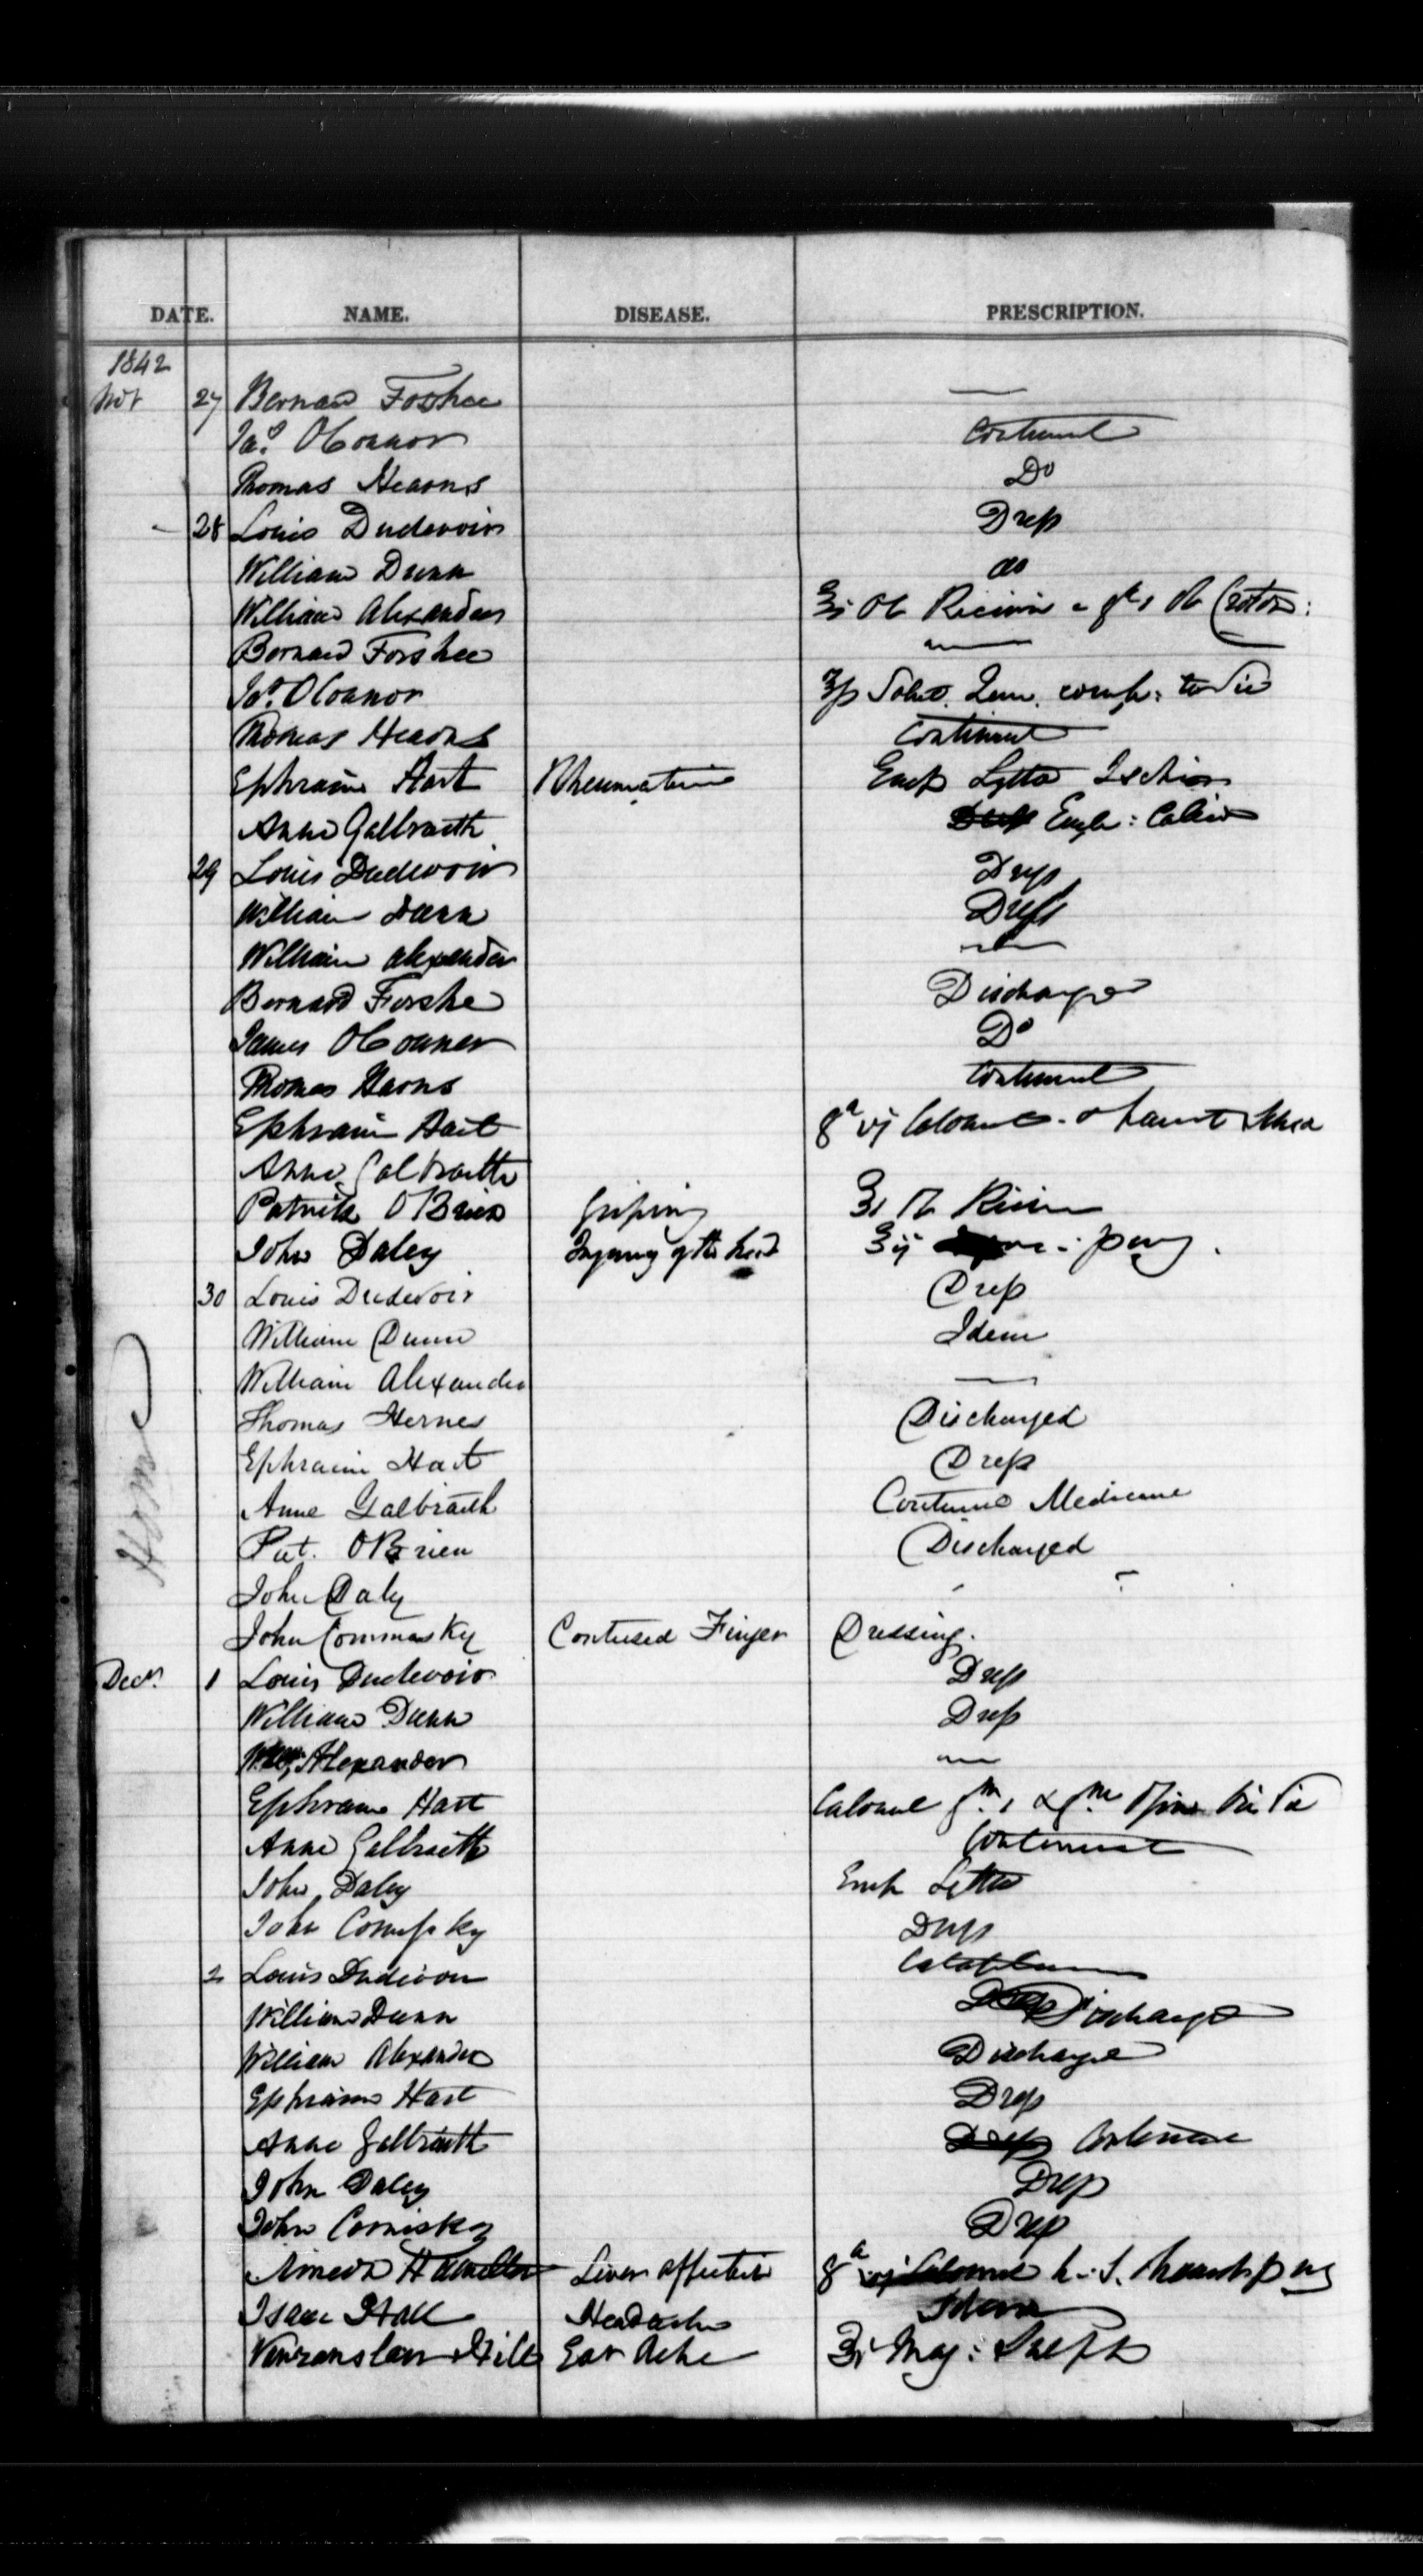 DATE. NAME. DISEASE. PRESCRIPTION.
1842
Nov 27 Bernard Foshee —
Jas. OConnor Continued
Thomas Hearns Do
28 Louis Dudevoir Dress
William Dunn do
William Alexander ℥i Ol Ricini Ol Croton:
Bernard Forshee —
Jas. OConnor
Thomas Hearns Continued
Ephraim Hart Rheumatism Emp Lytta Ischion
Anne Galbraith Emp:
29 Louis Dudevoir Dress
William Dunn Dress
William Alexander —
Bernard Forshe Discharged
James OConner Do
Thomas Harns Continued
Ephraim Hart gr vj Calomel
Anne Galbraith
Patrick OBrien Griping ℥i Ol Ricini
John Daley Injury of the head purg.
30 Louis Dudevoir Dress
William Dunn Idem
William Alexander —
Thomas Hernes Discharged
Ephraim Hart Dress
Anne Galbraith Continue Medicine
Pat. OBrien Discharged
John Daly
John Commasky Contused Finger Dressing.
Decr. 1 Louis Dudevoir Dress
William Dunn Dress
Alexander —
Ephraim Hart Calomel
Anne Galbraith Continued
John Daley Emp Lytta
John Comissky Dress
2 Louis Dudevoir Cataplasm
William Dunn Discharged
William Alexander Discharged
Ephraim Hart Dress
Anne Galbraith Dress Continue
John Daley Dress
John Comisky Dress
Hamilton Liver affection gr vj Calomel h.s.
Isaac Hall Headache Idem
Hill Ear Ache ℥i Mag: Sulph